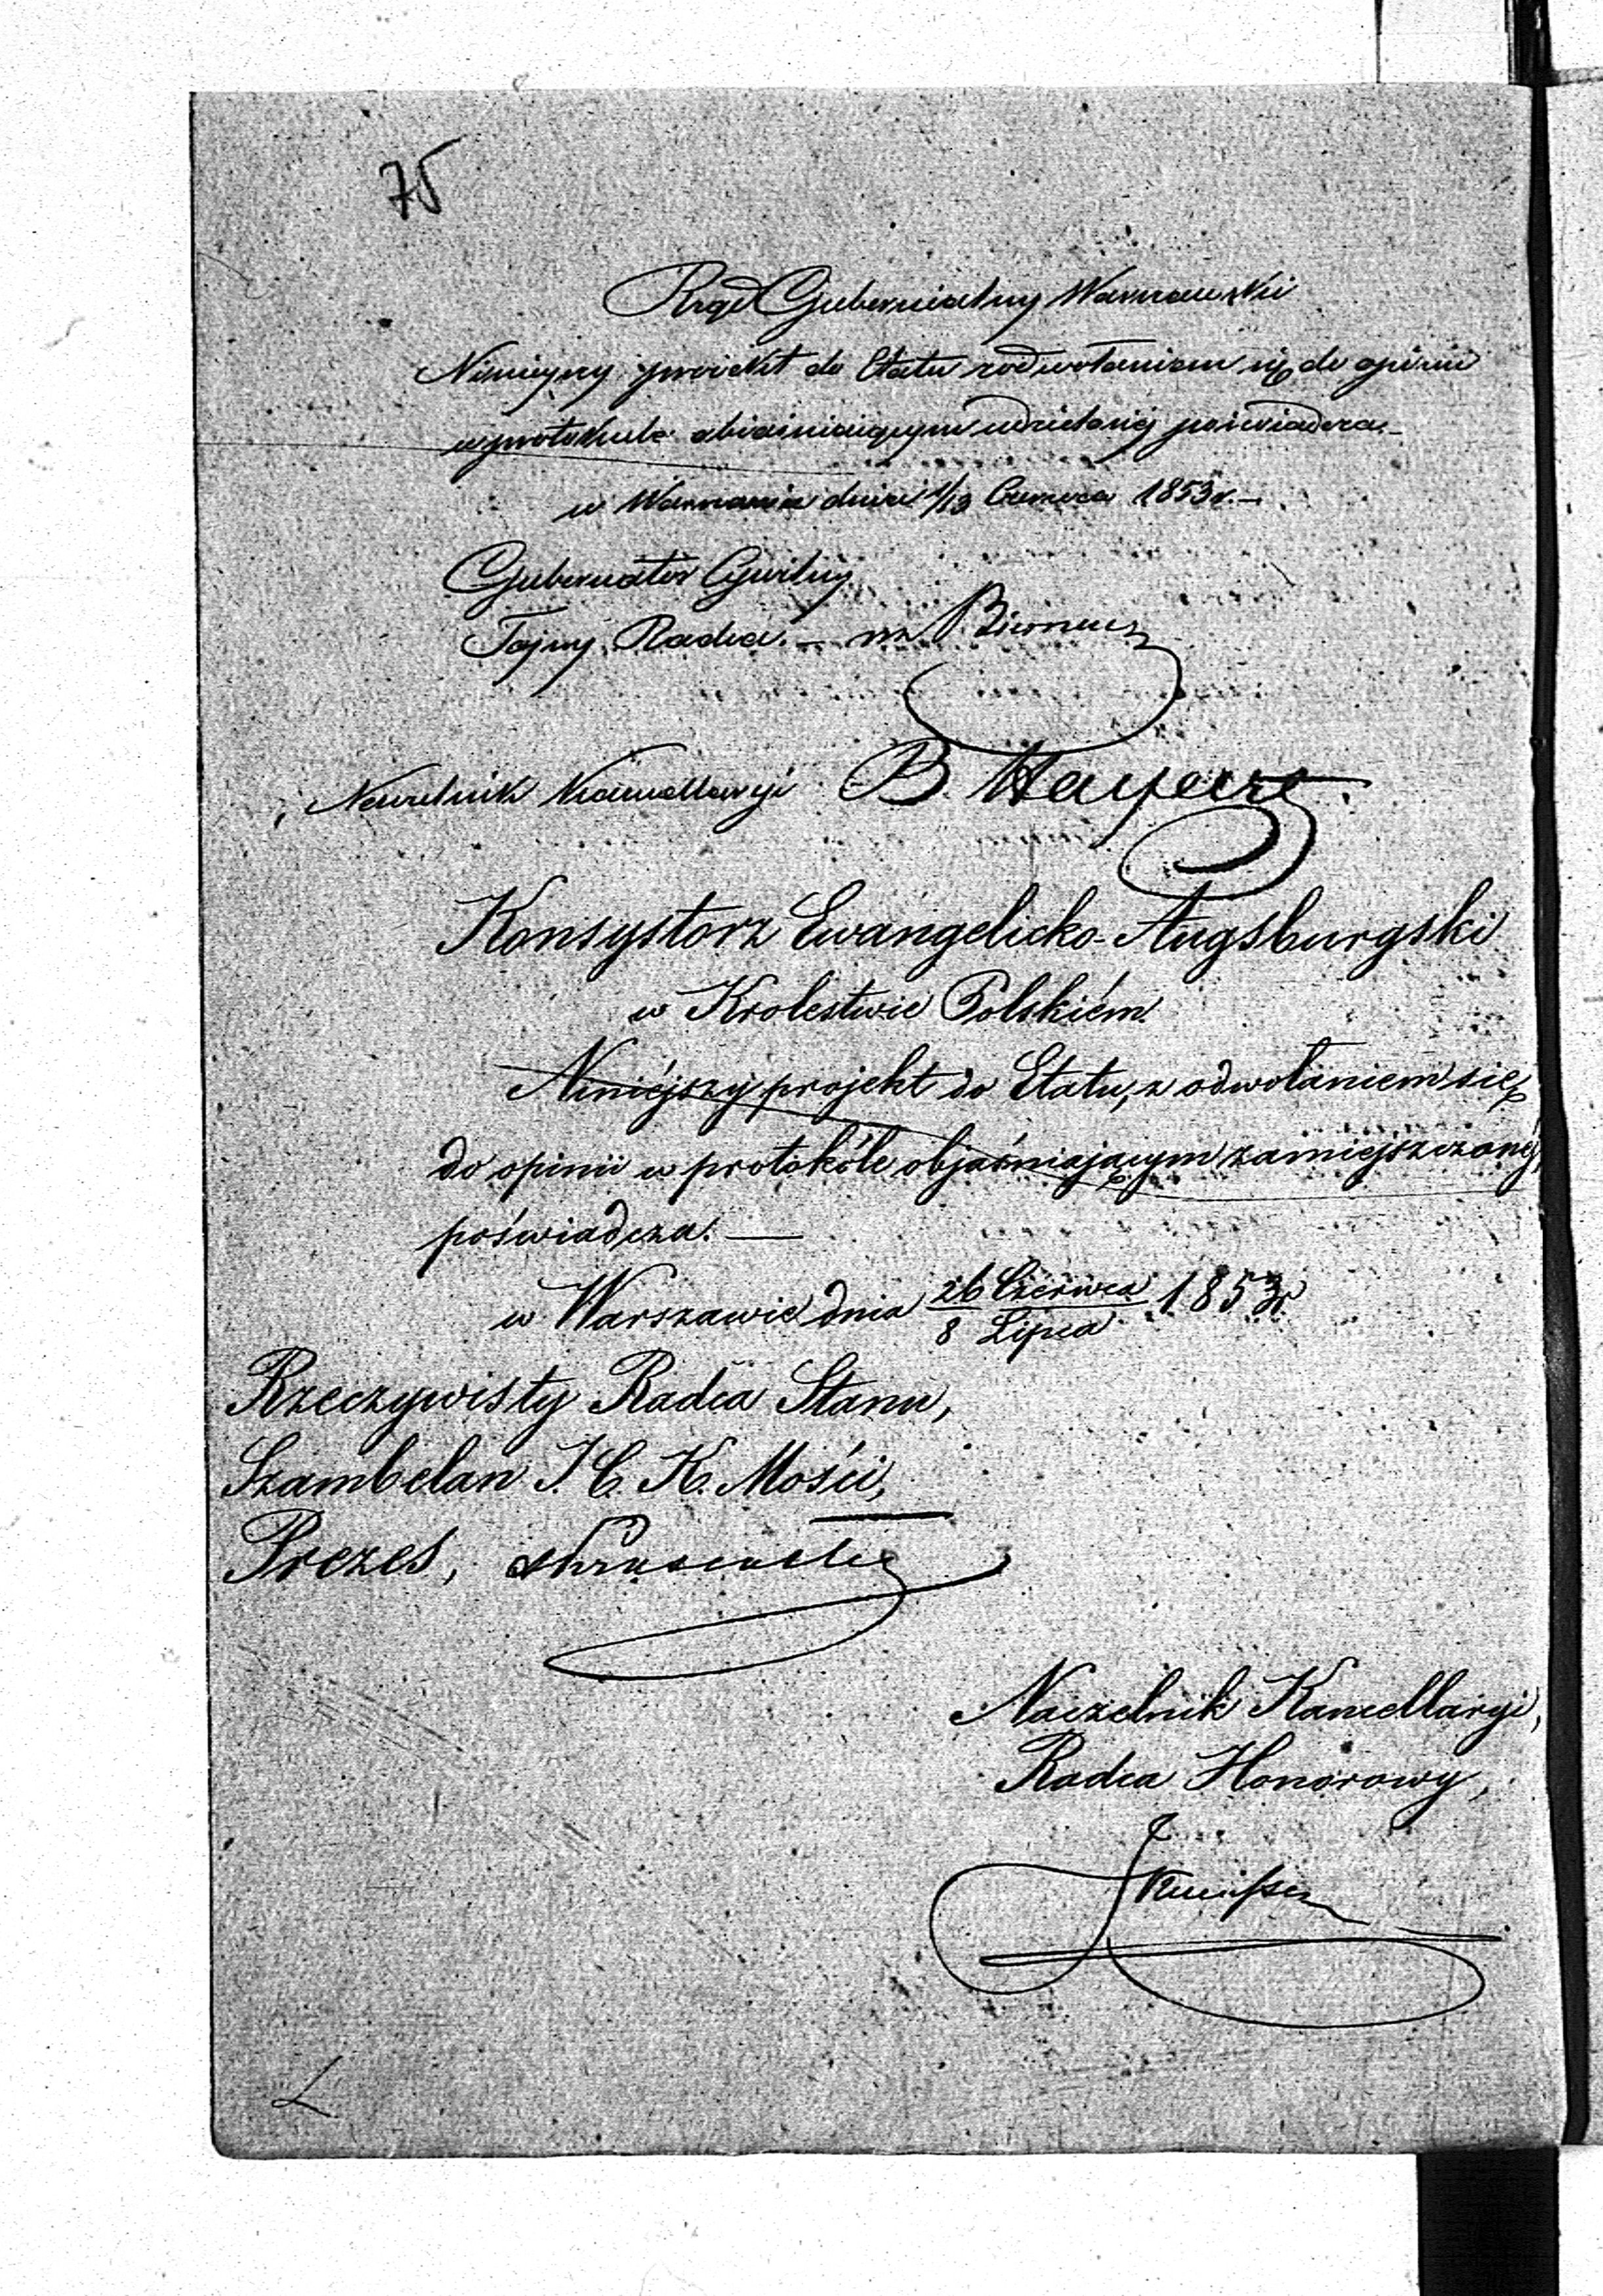 75
Rząd Gubernialny Warszawski
Niniejszy proiekt do Etatu z odwołaniem się do opinii
w protokule obiaśniaiącym udzielonéj poświadcza.—
w Warszawie dnia 1/13 Czerwca 1853 r.—
Gubernator Cywilny
Tajny Radca.—
Naczelnik Kancellaryi B.
Konsystorz Ewangelicko-Augsburgski
w Krolestwie Polskiém
Niniéjszy projekt do Etatu, z odwołaniem się
do opinii w protokóle objaśniającym zamiejszczonéj
poświadcza.—
w Warszawie dnia 26 Czerwca / 8 Lipca 1853 r
Rzeczywisty Radca Stanu,
Szambelan J. C. K. Mości,
Prezes,
Naczelnik Kancellaryi,
Radca Honorowy,